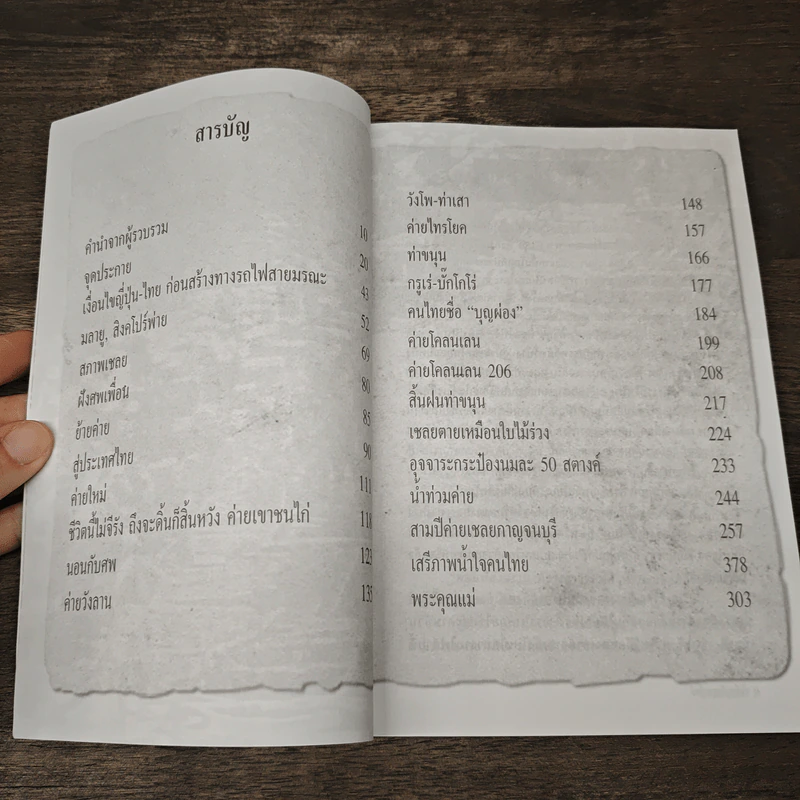 สารบัญ
คำนำจากผู้รวบรวม 10
จุดประกาย 20
เงื่อนไขญี่ปุ่น-ไทย ก่อนสร้างทางรถไฟสายมรณะ 43
มลายู, สิงคโปร์พ่าย 52
สภาพเชลย 69
ฝังศพเพื่อน 80
ย้ายค่าย 85
สู่ประเทศไทย 90
ค่ายใหม่ 111
ชีวิตนี้ไม่จีรัง ถึงจะดิ้นก็สิ้นหวัง ค่ายเขาชนไก่ 118
นอนกับศพ 123
ค่ายวังลาน 135
วังโพ-ท่าเสา 148
ค่ายไทรโยค 157
ท่าขนุน 166
กรูเร่-บั๊กโกโร่ 177
คนไทยชื่อ “บุญผ่อง” 184
ค่ายโคลนเลน 199
ค่ายโคลนเลน 206 208
สิ้นฝนท่าขนุน 217
เชลยตายเหมือนใบไม้ร่วง 224
อุจจาระกระป๋องนมละ 50 สตางค์ 233
น้ำท่วมค่าย 244
สามปีค่ายเชลยกาญจนบุรี 257
เสรีภาพน้ำใจคนไทย 378
พระคุณแม่ 303